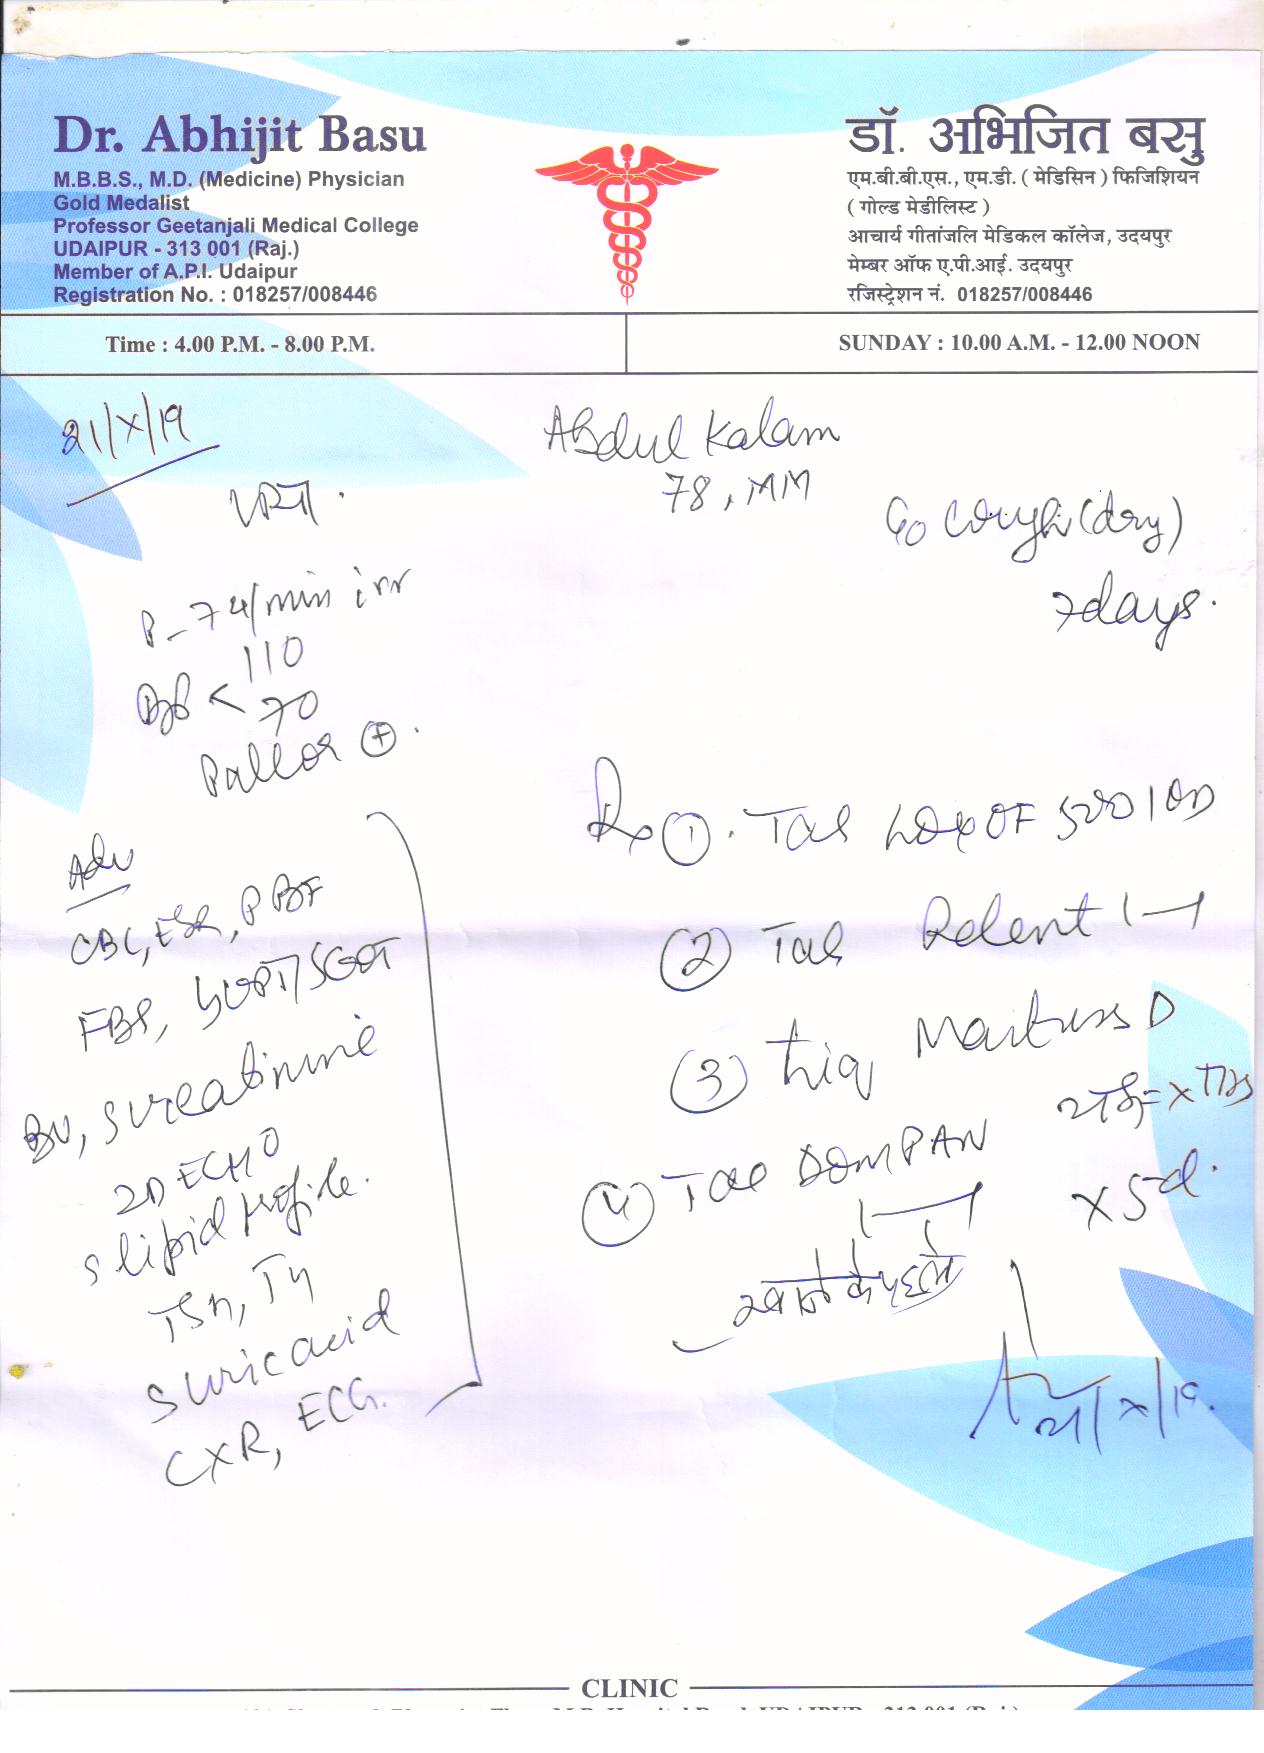 Dr. Abhijit Basu
M.B.B.S., M.D. (Medicine) Physician
Gold Medalist
Professor Geetanjali Medical College
UDAIPUR - 313 001 (Raj.)
Member of A.P.I. Udaipur
Registration No. : 018257/008446
डॉ. अभिजित बसु
एम.बी.बी.एस., एम.डी. ( मेडिसिन ) फिजिशियन
( गोल्ड मेडीलिस्ट )
आचार्य गीतांजलि मेडिकल कॉलेज, उदयपुर
मेम्बर ऑफ ए.पी.आई. उदयपुर
रजिस्ट्रेशन नं. 018257/008446
Time : 4.00 P.M. - 8.00 P.M.
SUNDAY : 10.00 A.M. - 12.00 NOON
21/X/19
Abdul Kalam
78, MM
C/o Cough (dry)
7days.
P - 74/min irr
BP < 110
70
Pallor +
Adv
CBC, ESR, PBF
FBS, SGPT/SGOT
BU, S creatinine
2D ECHO
S lipid profile.
TSH, T4
S uric acid
CXR, ECG.
Rx 1. Tab LOXOF 500 1 OD
2 Tab Relent 1-1
3 Liq Mastuss D
x TDS
4 Tab DOMPAN
1-1
x 5d.
खाने के पहले
21/X/19.
CLINIC